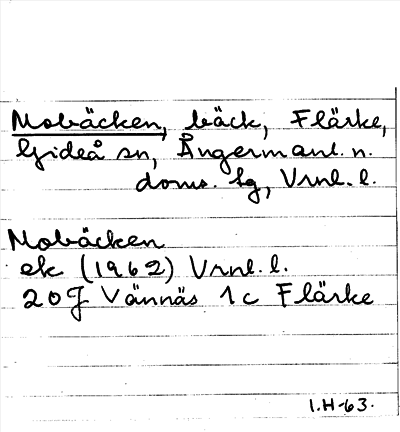 Mobäcken, bäck, Flärke,
Gideå sn, Ångermanl. n.
doms. lg, Vrnl. l.
Mobäcken
ek (1962) Vrnl. l.
20J Vännäs 1c Flärke
I.H-63.